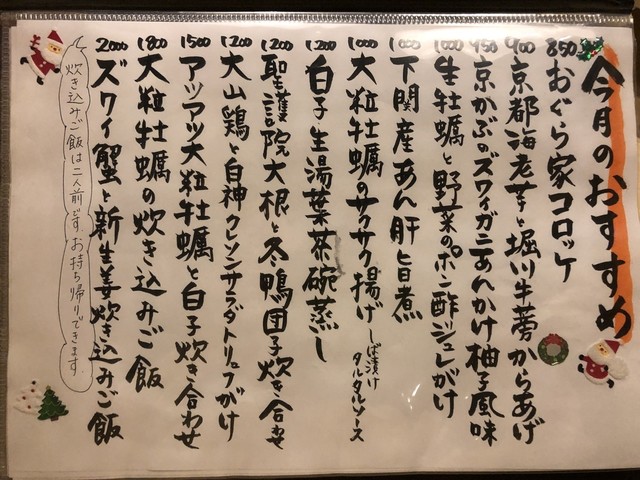 今月のおすすめ
850 おぐら家コロッケ
900 京都海老芋と堀川牛蒡からあげ
950 京かぶのズワイガニあんかけ柚子風味
1000 生牡蠣と野菜のポン酢ジュレがけ
1000 下関産あん肝旨煮
1000 大粒牡蠣のサクサク揚げ しば漬けタルタルソース
1200 白子・生湯葉茶碗蒸し
1200 聖護院大根と冬鴨団子炊き合わせ
1200 大山鶏と白神クレソンサラダトリュフがけ
1500 アツアツ大粒牡蠣と白子炊き合わせ
1800 大粒牡蠣の炊き込みご飯
2000 ズワイ蟹と新生姜炊き込みご飯
炊き込みご飯は二人前です。お持ち帰りできます。